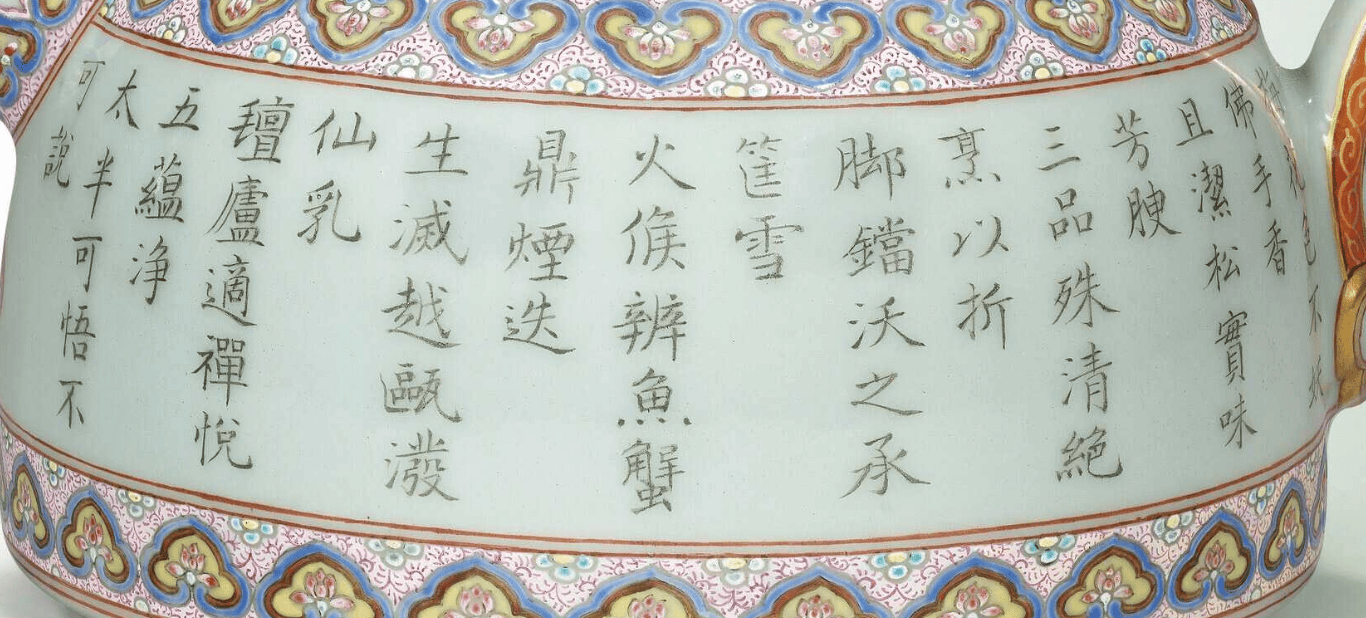 梅花色不妖
佛手香
且潔松實味
芳腴
三品殊清絕
烹以折
脚鐺沃之承
筐雪
火候辨魚蟹
鼎煙迭
生滅越甌潑
仙乳
氊廬適禪悅
五蘊净
太半可悟不
可說